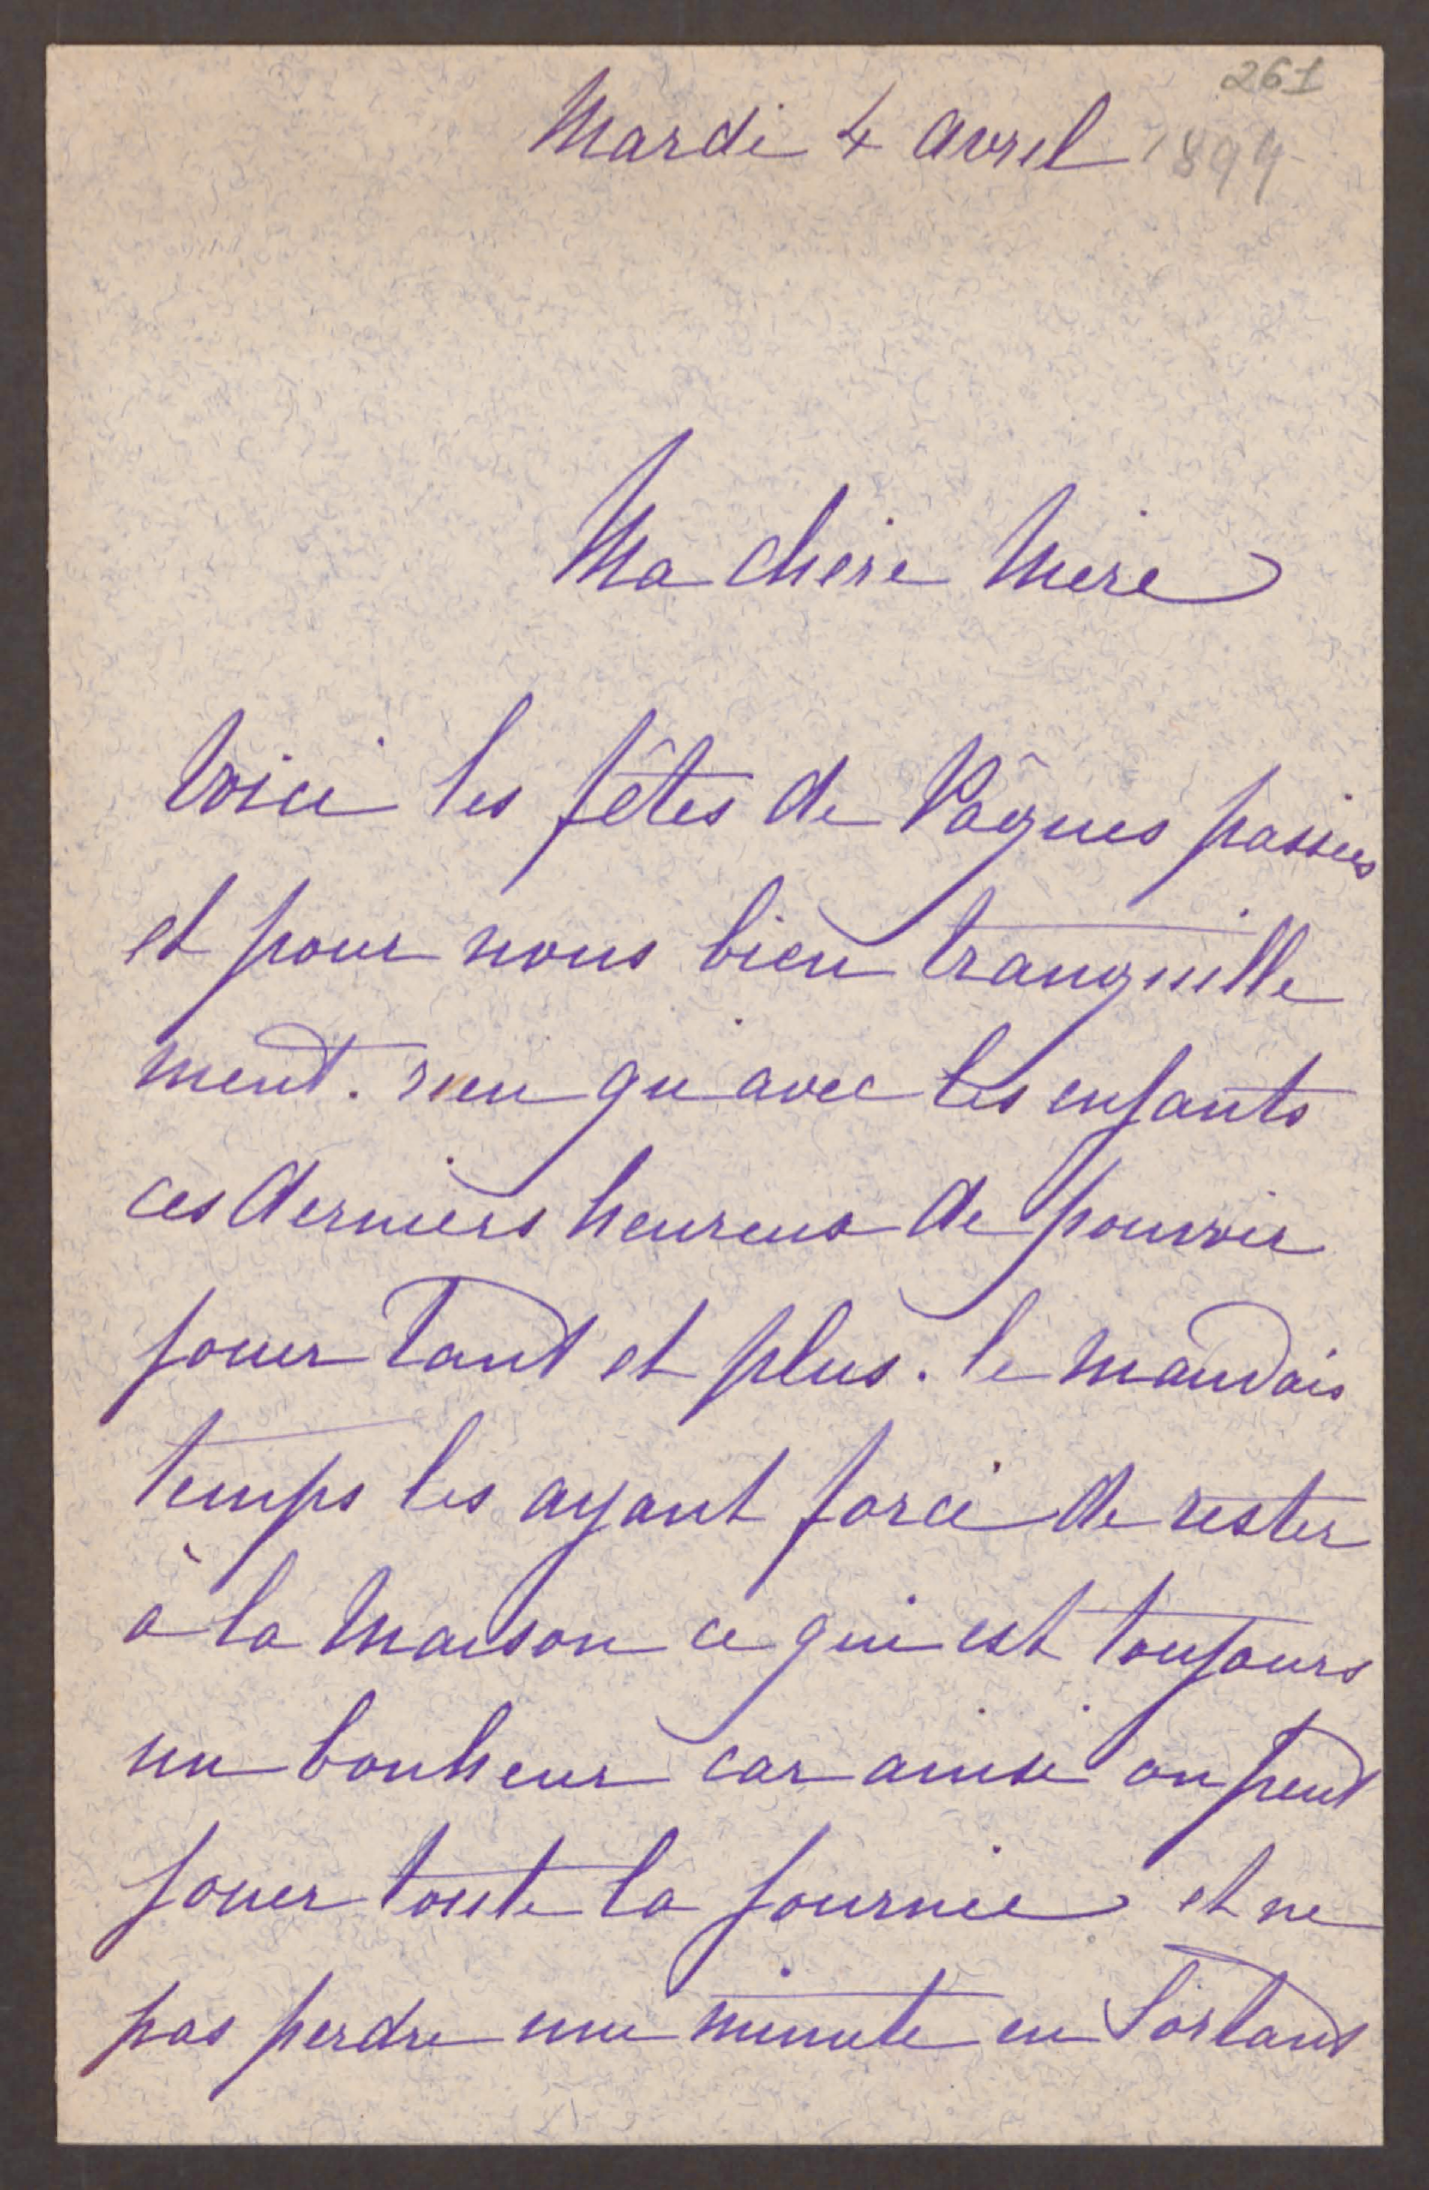 261
Mardi 4 avril 1899
Ma chère Mère
Voici les fêtes de Pâques passées
et pour nous bien tranquille
ment. rien qu'avec les enfants
ces derniers heureux de pouvoir
jouer tant et plus. le mauvais
temps les ayant forcé de rester
à la maison ce qui est toujours
un bonheur car ainsi on peut
jouer toute la journée et ne
pas perdre une minute en sortant